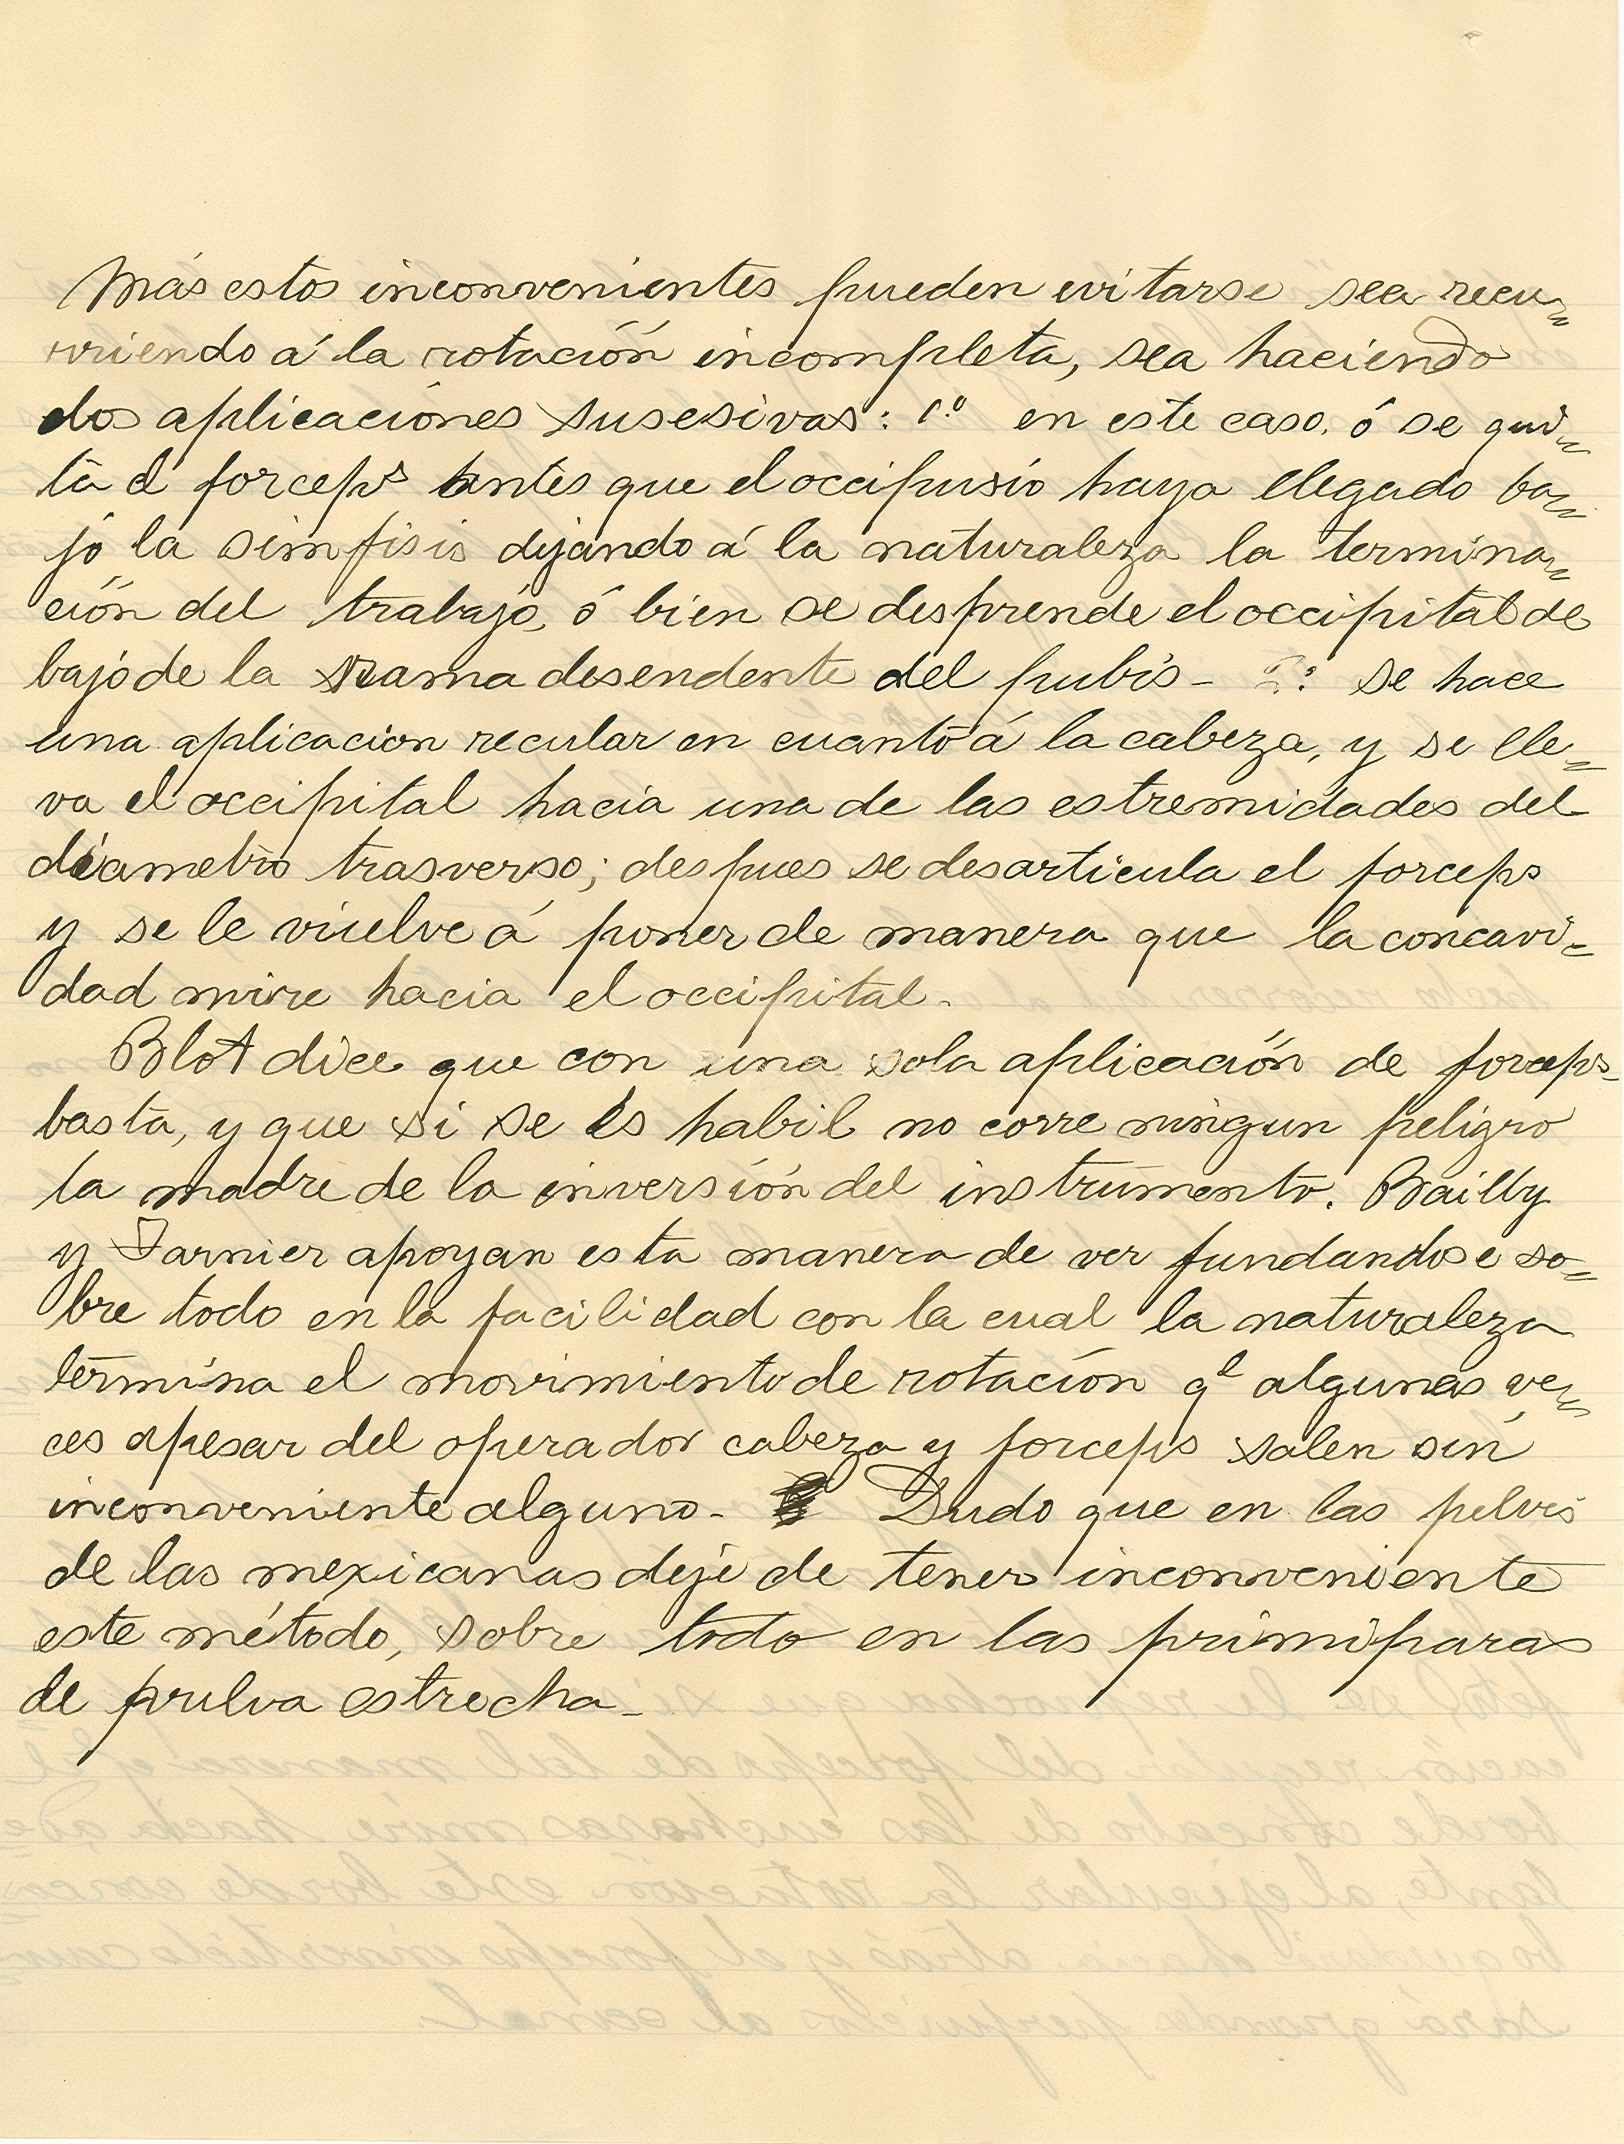 Más estos inconvenientes pueden evitarse sea recu=
rriendo á la rotación incompleta, sea haciendo
dos aplicaciónes susesivas: 1.º en este caso, ó se qui=
ta el forceps antes que el occipusio haya llegado ba=
jo la simfisis dejando á la naturaleza la termina=
ción del trabajo, ó bien se desprende el occipital de
bajo de la rama desendente del pubis - 2.º se hace
una aplicacion recular en cuanto á la cabeza, y se lle=
va el occipital hacia una de las estremidades del
diametro trasverso; despues se desarticula el forceps
y se le vuelve á poner de manera que la concavi=
dad mire hacia el occipital.
Blot dice que con una sola aplicación de forceps
basta, y que si se es habil no corre ningun peligro
la madre de la inversión del instrumento. Bailly
y Tarnier apoyan esta manera de ver fundandose so=
bre todo en la facilidad con la cual la naturaleza
termina el movimiento de rotación qe algunas ve=
ces apesar del operador cabeza y forceps salen sin
inconveniente alguno - Dudo que en las pelvis
de las mexicanas deje de tener inconveniente
este método, sobre todo en las primiparas
de vulva estrecha -